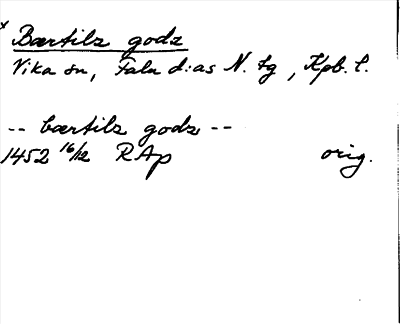 x Bærtilz godz
Vika sn, Falu d:as N. tg, Kpb. l.
-- bærtilz godz --
1452 16/12 RAp orig.